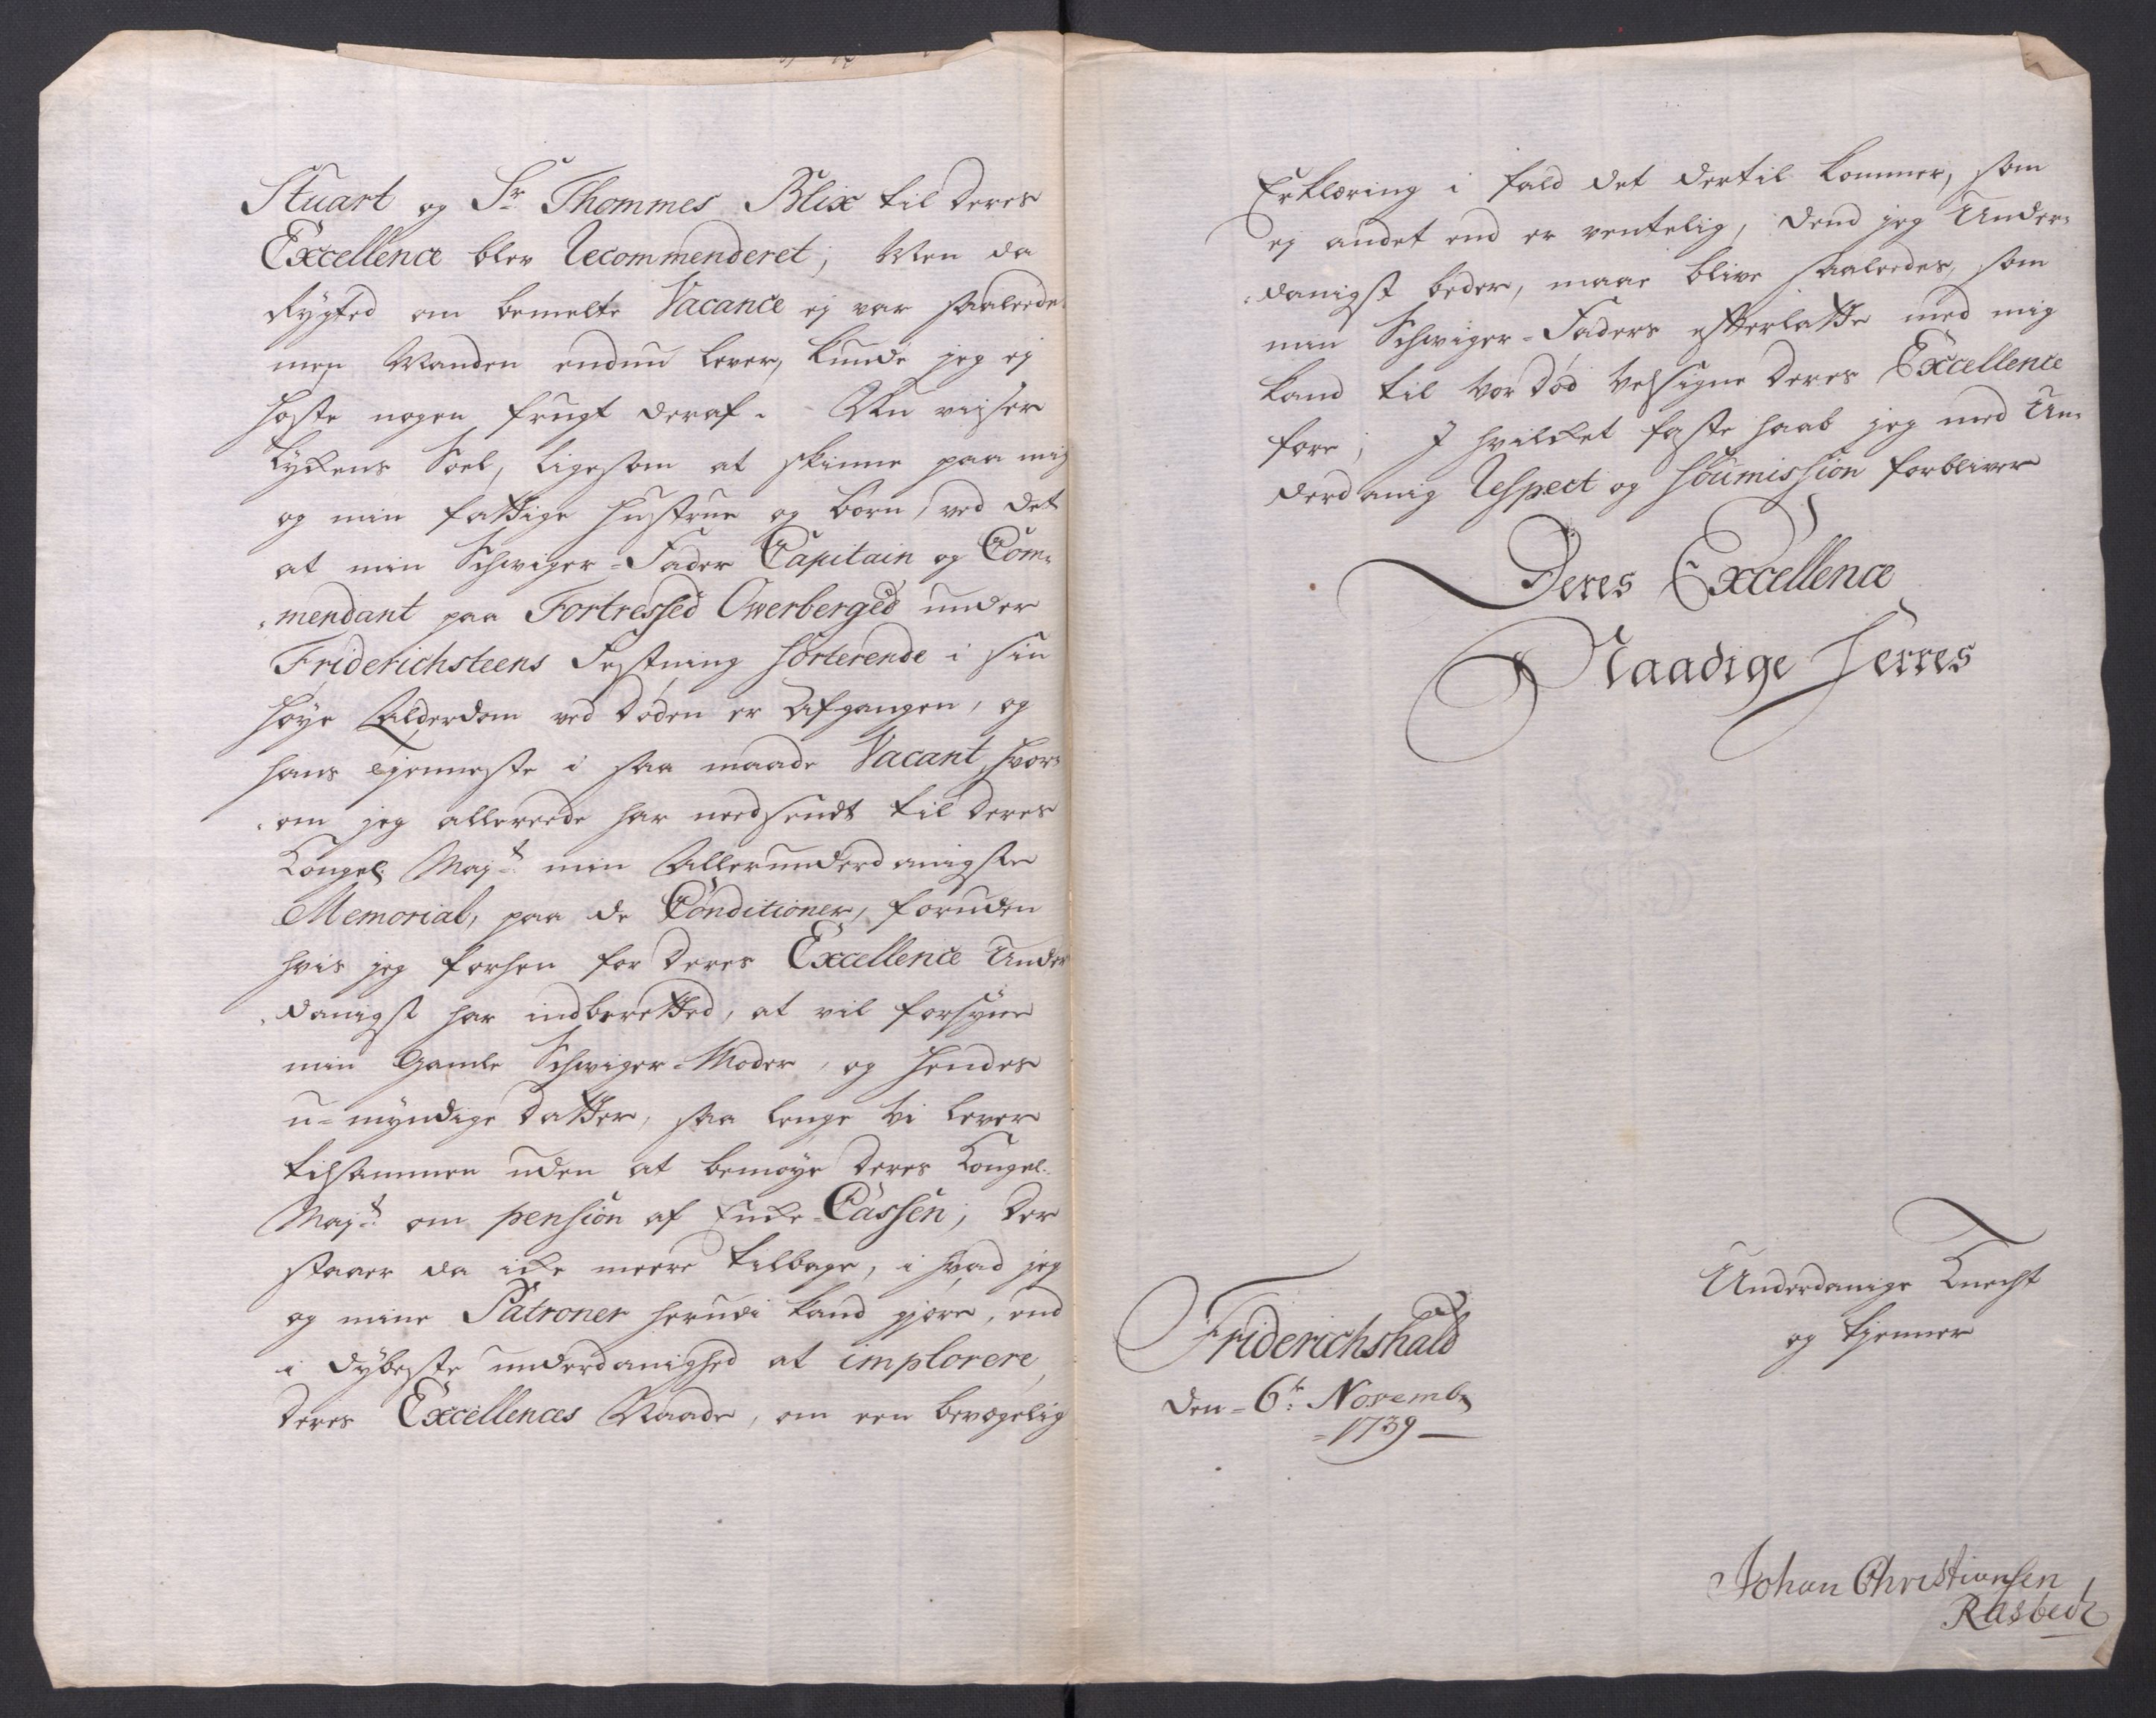 Stuart og Sr. Thommes Blix til Deres
Excellence blev Recommenderet; Men da
Rygted om bemelte Vacance ej var saaleedes
men Manden endnu lever, kunde jeg ej
høste nogen frugt deraf. Nu viiser
Lykens Soel, ligesom at skinne paa mig
og min fattige Hustrue og børn, ved det
at min Schwiger-Fader Capitain og Com-
mendant paa Fortressed Owerberged under
Friderichsteens Festning sorterende i sin
høye Alderdom ved Døden er Afgangen, og
hans Tjenneste i saa maade Vacant, hvor-
om jeg allereede har needsendt til Deres
Kongel: Majt: min Allerunderdanigste
Memorial, paa de Conditioner, foruden
hvis jeg forhen for Deres Excellence Under
danigst har indberetted, at vil forsyne
min gamle Schwiger-Moder, og Hendes
u-myndige Datter, saa lenge Vi lever
tilsammen uden at bemøye Deres Kongel.
Majt: om pension af Enke-Cassen; Der
staaer da icke meere tilbage, i hvad jeg
og mine Patroner herudi kand gjøre, end
i dybeste underdanighed at implorere,
Deres Excellences Naade, om een bevægelig
Erklæring i fald det dertil kommer, som
ej andet end er ventelig, dend jeg Under-
danigst beder, maae blive saaleedes, som
min Schwiger-Faders efterlatte med mig
kand til Vor Død Velsigne Deres Excellence
fore; I hvilcket faste haab jeg med Un-
derdanig Respect og Soumission forbliver
Deres Excellence
Naadige Herres
Underdanige Knecht
og tjenner
Friderichshald
den 6te: Novembr
1739
Johan Christiansen
Rasbech